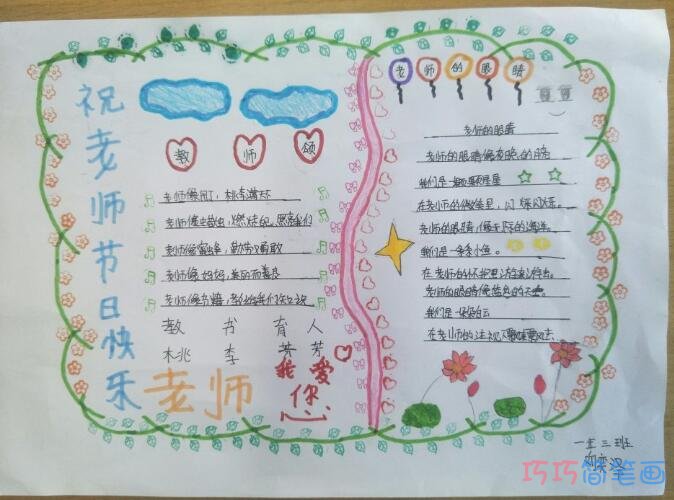 祝老师节日快乐
教师颂
老师像园丁，桃李满天
老师像蜡烛，燃烧自己照亮我们
老师像蜜蜂，勤劳又勇敢
老师像妈妈，美丽而善良
老师像书籍，教给我们知识
教书育人
桃李芬芳
老师
我爱你
老师的眼睛
老师的眼睛
老师的眼睛像夜晚的月亮
我们是一颗颗星星
在老师的微笑里，闪烁闪烁。
老师的眼睛，像干净的海洋。
我们是一条条小鱼。
在老师的怀抱里游来游去。
老师的眼睛像蓝色的天空。
我们是一朵朵白云
在老师的注视下飘来飘去。
一年三班
巧巧简笔画